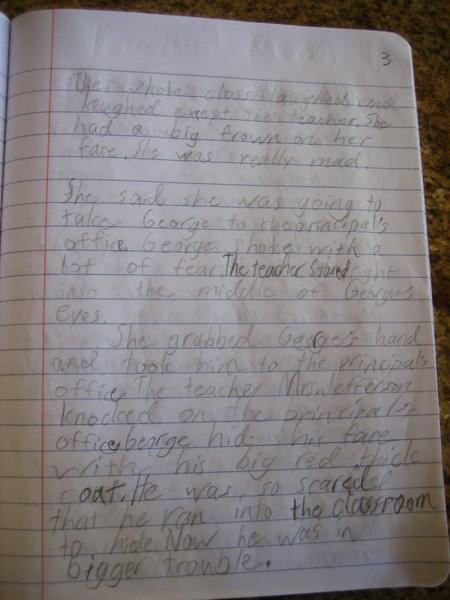 3
The whole class laughed and
laughed except the teacher. She
had a big frown on her
face. She was really mad.
She said she was going to
take George to the principal's
office. George shoke with a
lot of fear. The teacher stared right
into the middle of George's
eyes.
She grabbed George's hand
and took him to the principal's
office. The teacher Mrs. Jefferson
knocked on the principal's
office. George hid his face
with his big red thick
coat. He was so scared
that he ran into the classroom
to hide. Now he was in
bigger trouble.